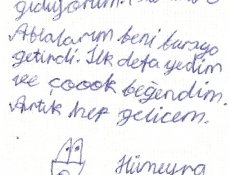 gidiyorum.
Ablalarım beni buraya
getirdi. İlk defa yedim
ve çoook beğendim.
Artık hep gelicem.
Hümeyra